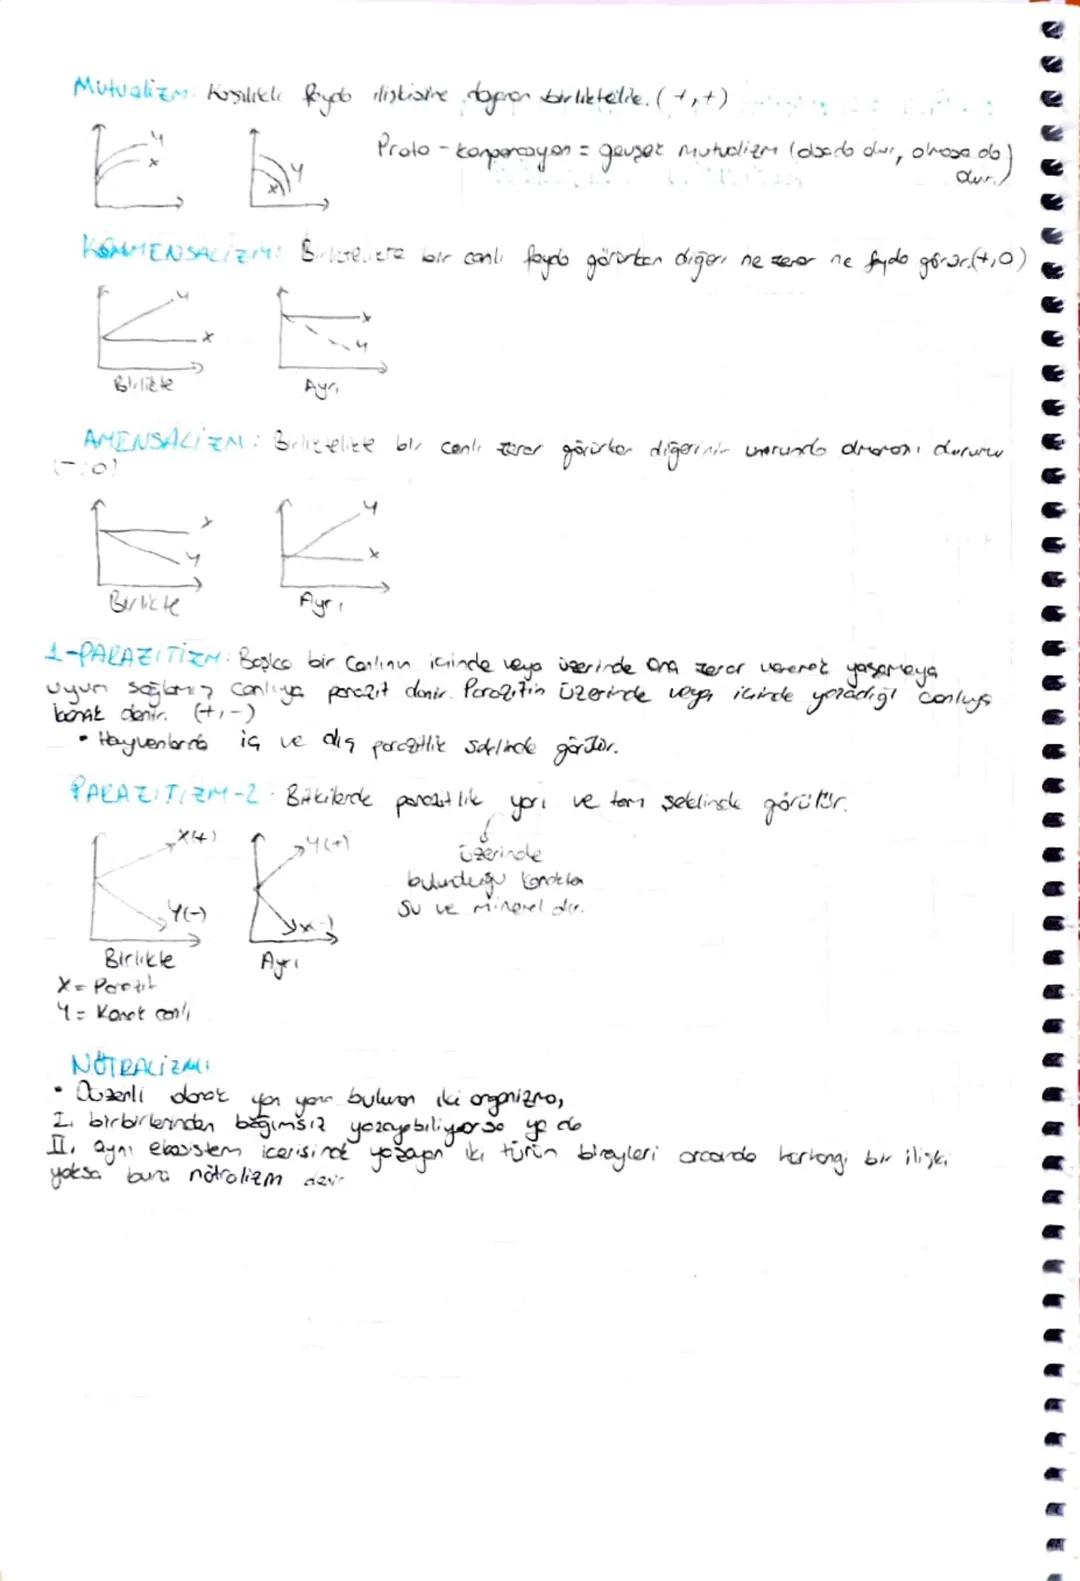 Mutualizm: Karşılıklı fayda ilişkisine dayanan birliktelik. (+,+)
y
x
y
x
Proto-konperasyon = gevşek mutualizm (olsada olur, olmasa da
olur.)
KOMMENSALİZM: Birliktelikte bir canlı fayda görürken diğeri ne zarar ne fayda görür.(+,0)
y
x
x
y
Birlikte
Ayrı
AMENSALİZM: Birliktelikte bir canlı zarar görürken diğerinin umurunda olmaması durumu
(-,0)
x
y
y
x
Birlikte
Ayrı
1-PARAZİTİZM: Başka bir canlının içinde veya üzerinde ona zarar vererek yaşamaya
uyum sağlamış canlıya parazit denir. Parazitin üzerinde veya içinde yaşadığı canlıya
konak denir. (+,-)
• Hayvanlarda iç ve dış parazitlik şeklinde görülür.
PARAZİTİZM-2: Bitkilerde parazitlik yarı ve tam şeklinde görülür.
X(+)
Y(-)
Y(+)
X(-)
üzerinde
bulunduğu konaktan
su ve mineral alır.
Birlikte
Ayrı
X = Parazit
Y = Konak canlı
NÖTRALİZM:
• Düzenli olarak yan yana bulunan iki organizma,
I. birbirlerinden bağımsız yaşayabiliyorsa ya da
II. aynı ekosistem içerisinde yaşayan iki türün bireyleri arasında herhangi bir ilişki
yoksa buna nötralizm denir